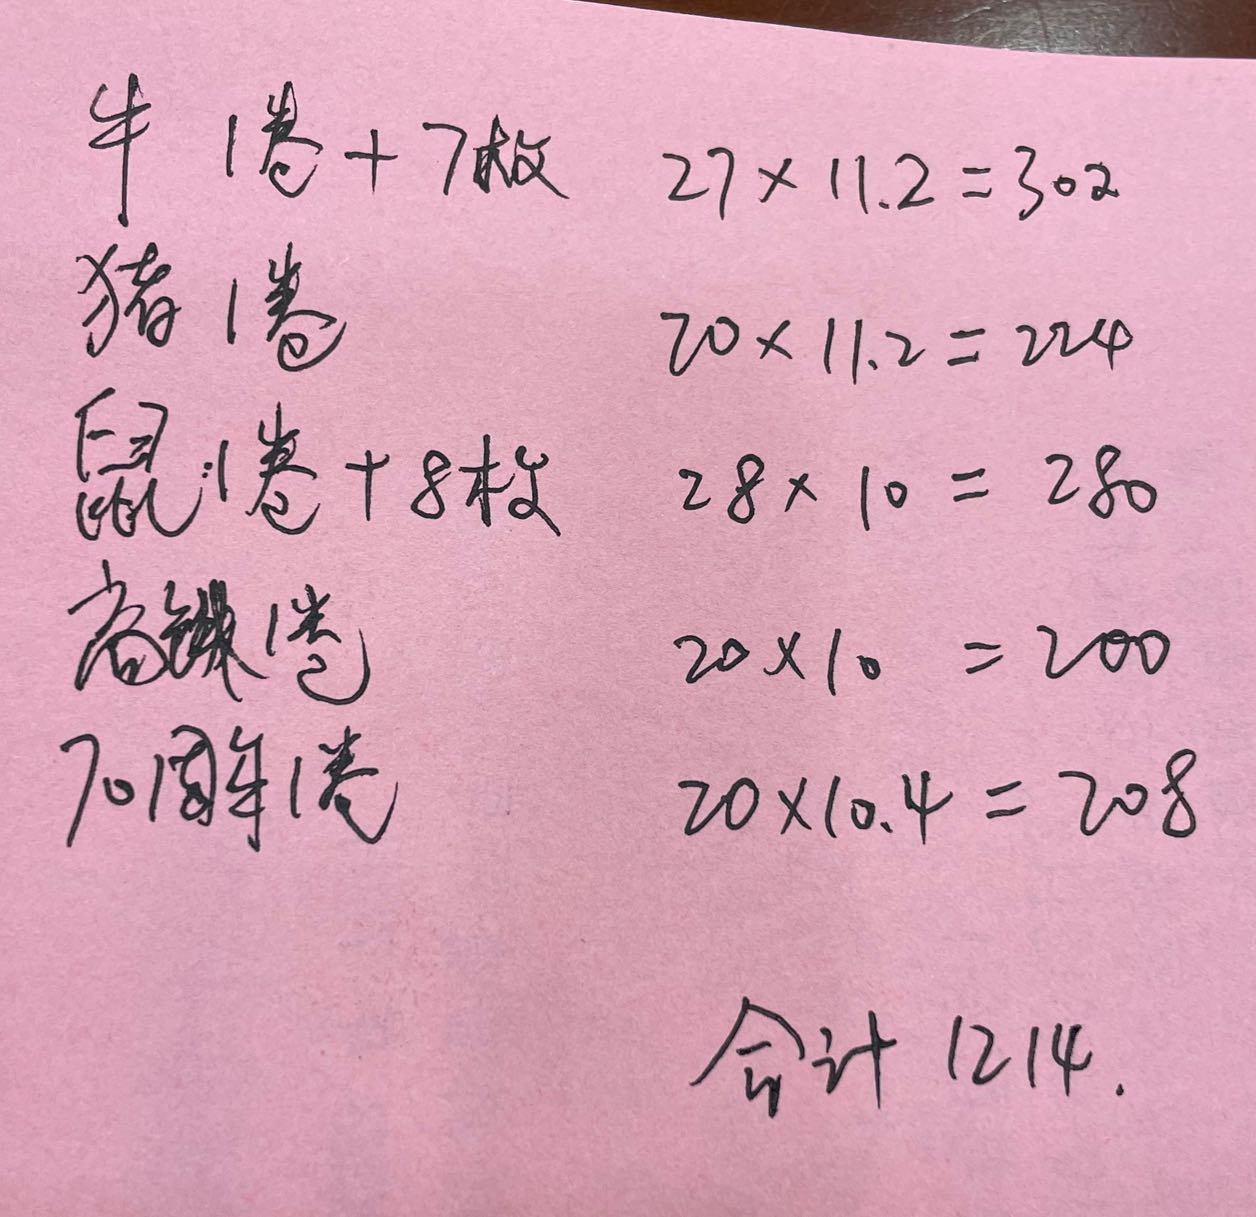 牛 1卷+7枚 27×11.2=302
猪 1卷 20×11.2=224
鼠 1卷+8枚 28×10=280
高鐵1卷 20×10=200
70周年1卷 20×10.4=208
合计 1214.